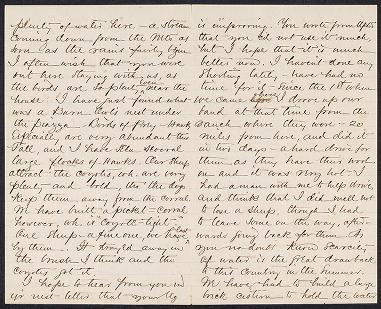 plenty of water here — a stream
coming down from the Mts as
soon as the rains fairly begin
I often wish that you were
out here staying with us, as
the birds are so plenty even near the
house. I have just found what
was a Barn Owl's nest under
the Piazza. Birds of Prey — Hawks
especially are very abundant this
Fall, and I have seen several
large flocks of Hawks. Our sheep
attract the coyotes, wh. are very
plenty and bold, tho' the dogs
keep them away from the corral.
M have built a picket-corral
however, wh is coyote-tight.
One sheep, a fine one, we have
lost by them. It strayed away in
the brush I think and the
coyotes got it.
I hope to hear from you in
yr next letter that your leg
is improving. You wrote from Upton
that you cd not use it much,
but I hope that it is much
better now. I haven't done any
shooting lately, — have had no
time for it — since the 1st when
we came I drove up our
band at that time from the
ranch where they were — 20
miles from here, and did it
in two days — a hard drive for
them as they have their wool
on and it was very hot — I
had a man with me to help drive,
and think that I did well not
to lose a sheep, though I had
to leave some on the way, after-
wards going back for them. As
you no doubt know scarcity
of water is the great drawback
to this country in the summer.
M have had to build a large
brick cistern to hold the water